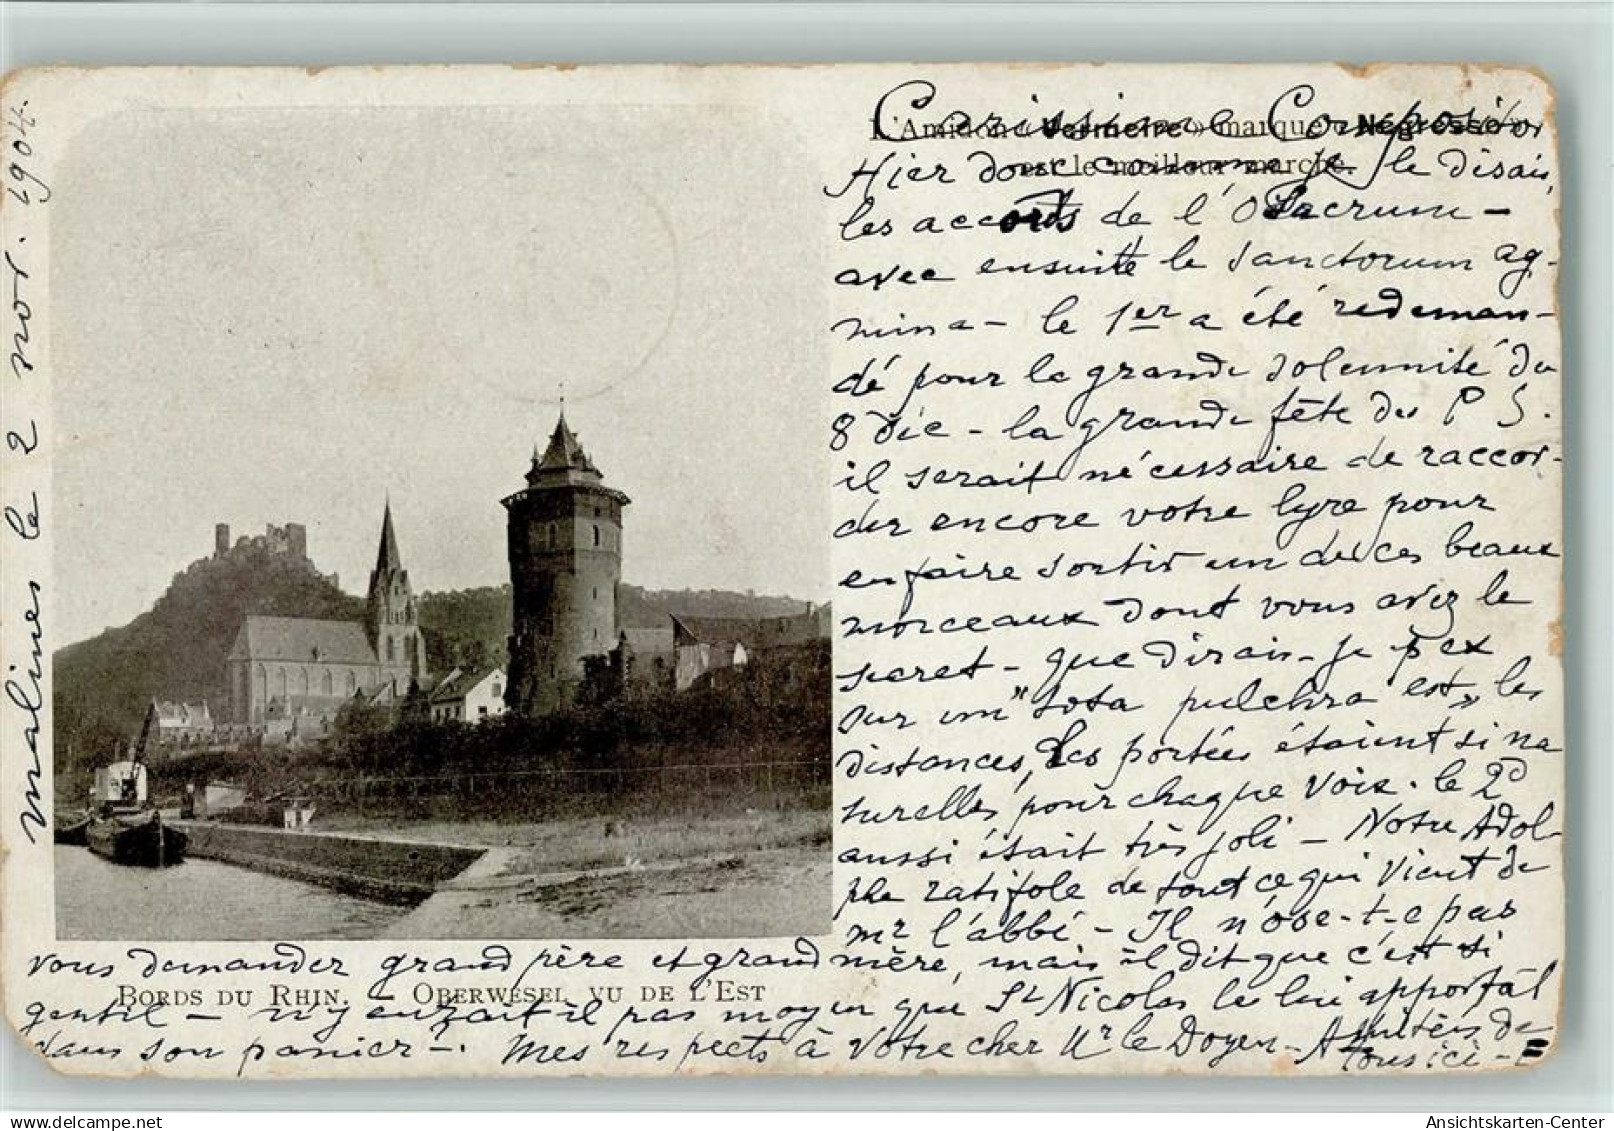 malines le 2 nov. 1904.
L'Amidon « Vermeire » marque « Négresse »
est le meilleur marché.
Carissime Compositor
Hier donc comme je le disais,
les accords de l'O Sacrum -
avec ensuite le Sanctorum ag-
mina - le 1er a été redeman-
dé pour la grande solemnité du
8 déc - la grande fête du P S.
il serait nécessaire de raccor-
der encore votre lyre pour
en faire sortir un de ces beaux
morceaux dont vous avez le
secret - que dirais-je p ex
sur un "tota pulchra est" les
distances, les portées étaient si na
turelles pour chaque voix. le 2d
aussi était très joli - Notre Adol-
phe ratifole de tout ce qui vient de
mr l'abbé - Il n'ose-t-e pas
vous demander grand père et grand mère, mais il dit que c'est si
gentil - n'y aurait il pas moyen que St Nicolas le lui apportât
dans son panier -. Mes respects à votre cher Mr le Doyen - Amitiés de
tous ici -
BORDS DU RHIN. - OBERWESEL VU DE L'EST
https://www.delcampe.net
Ansichtskarten-Center